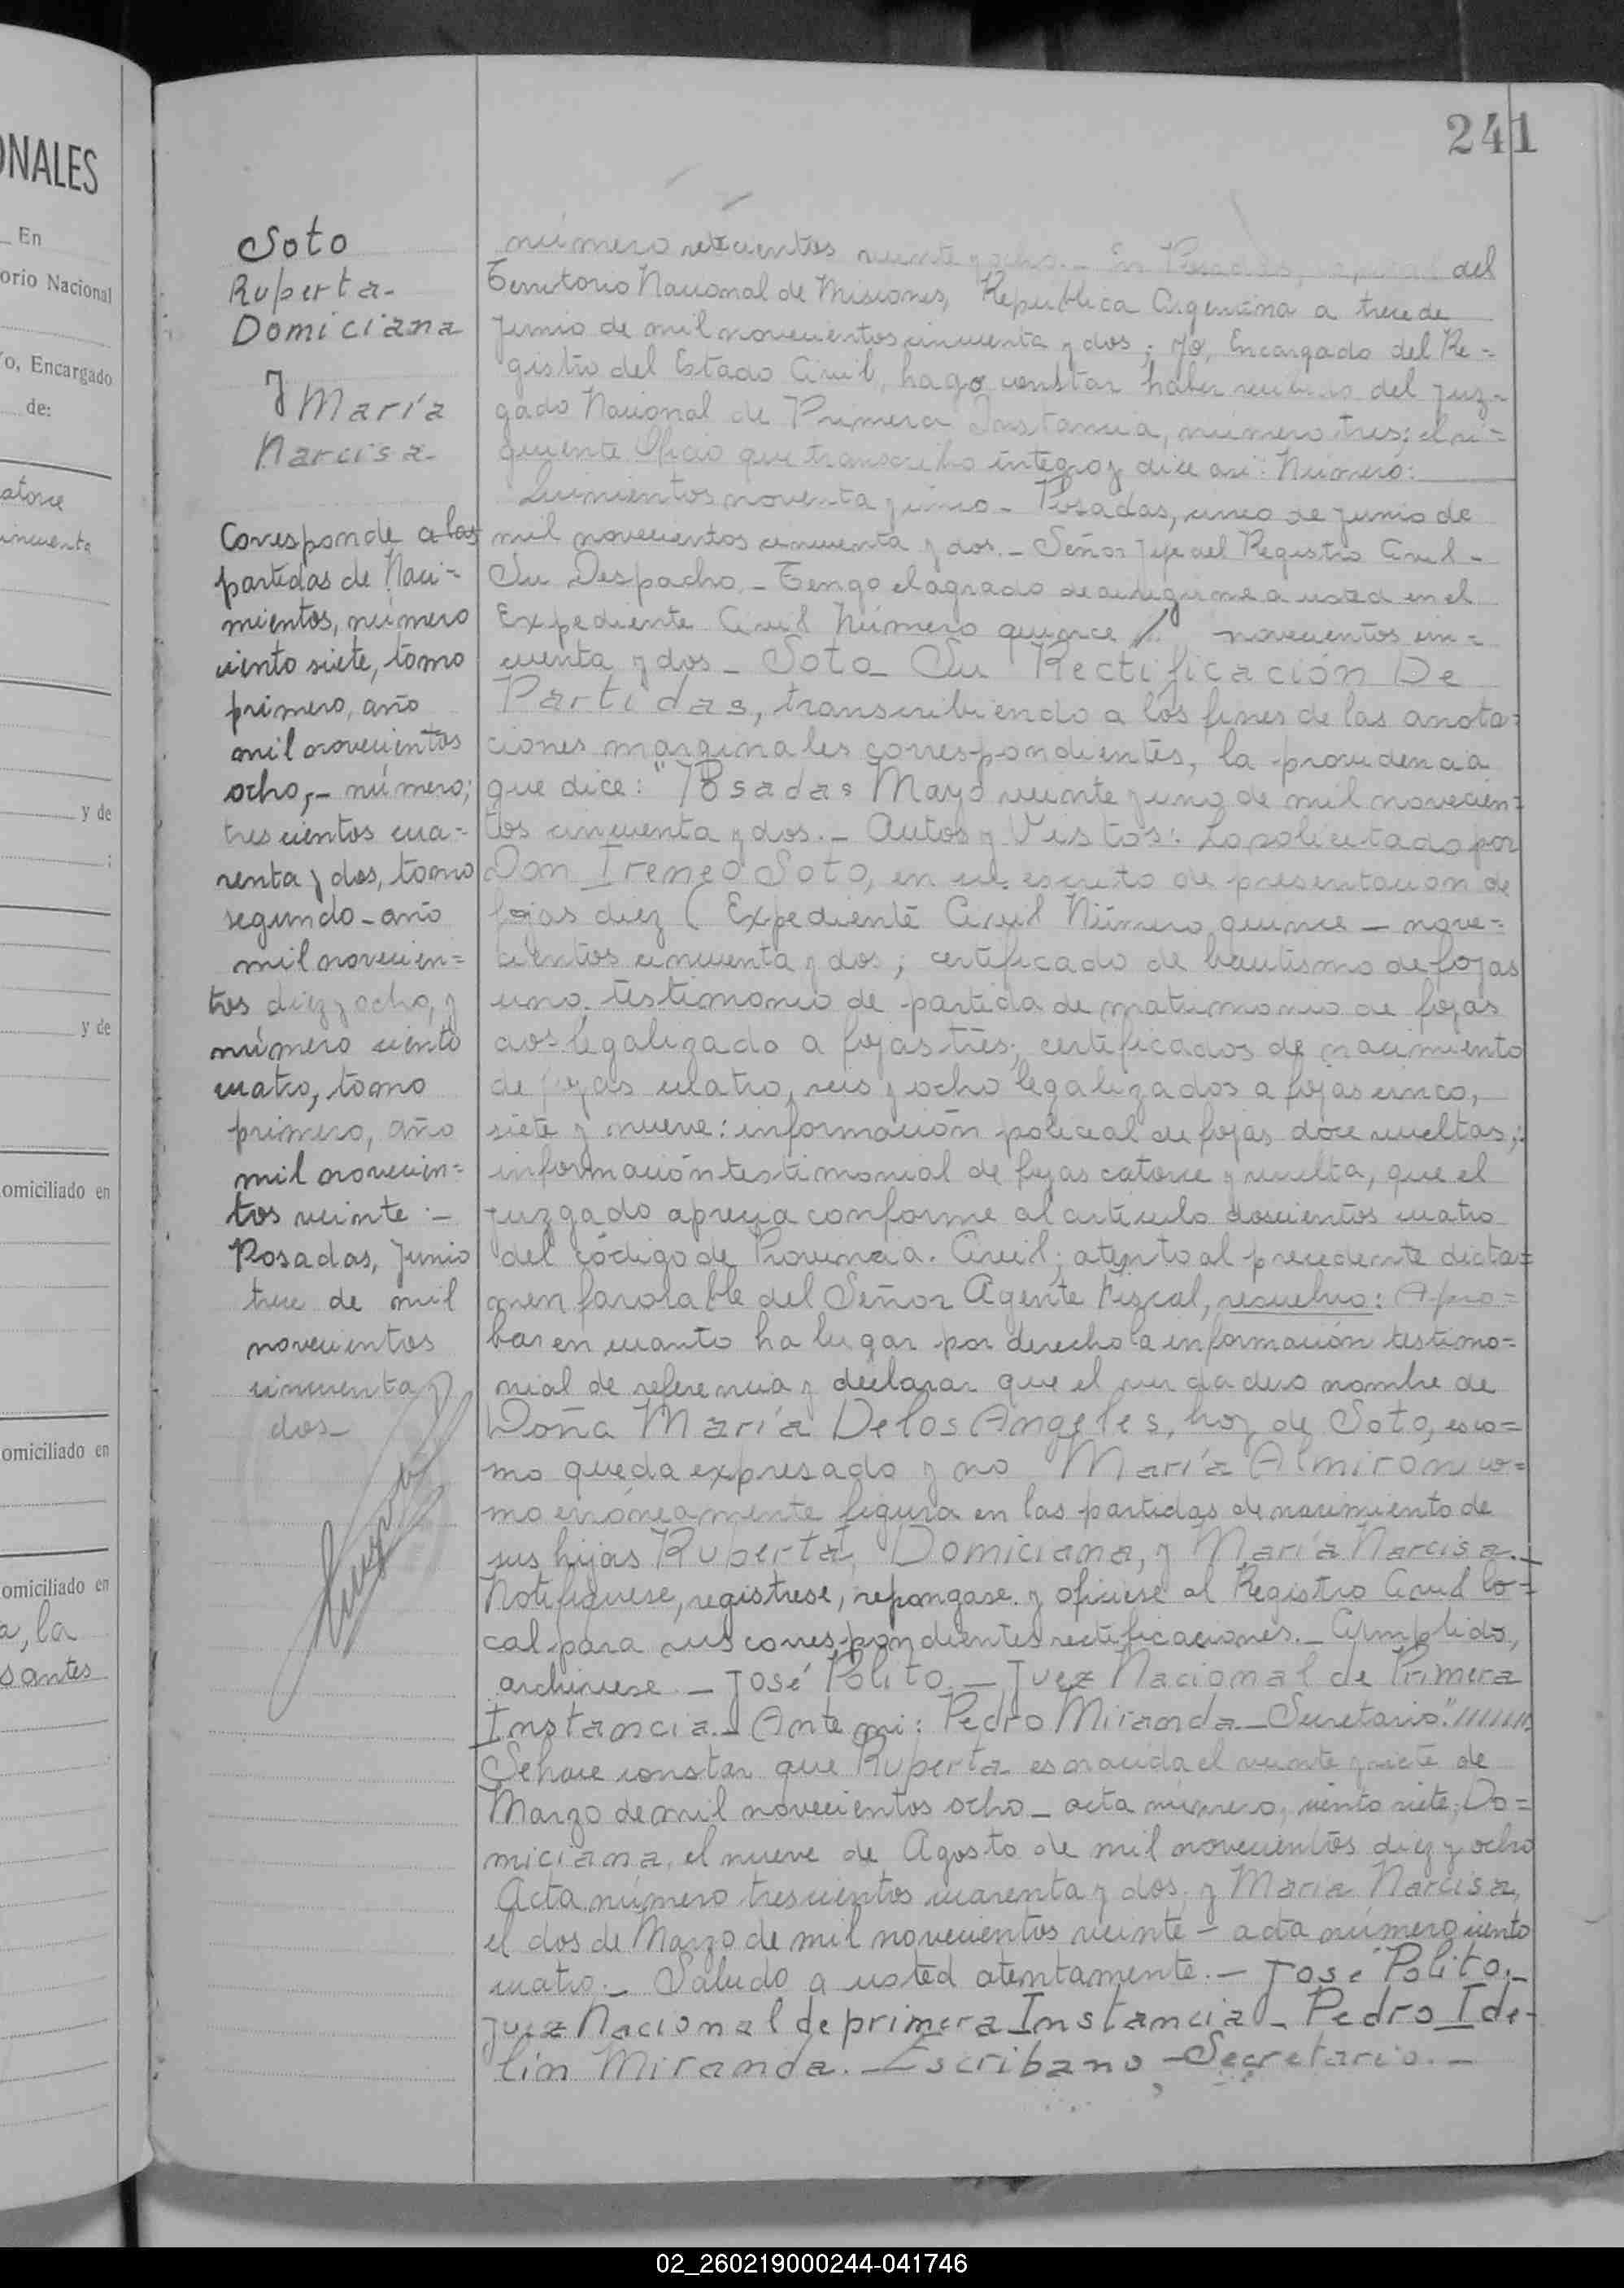 241
ONALES
En
orio Nacional
o, Encargado
de:
atorce
incuenta
y de
y de
omiciliado en
omiciliado en
omiciliado en
a, la
santes
Soto
Ruperta-
Domiciana
y María
Narcisa-
Corresponde a las
partidas de Naci=
mientos, número
ciento siete, tomo
primero, año
mil novecientos
ocho,- número;
trescientos cua=
renta y dos, tomo
segundo-año
mil novecien=
tos diez y ocho, y
número ciento
cuatro, tomo
primero, año
mil novecien=
tos veinte.-
Posadas, Junio
trece de mil
novecientos
cincuenta y
dos-
número veinte y ocho.- En Posadas, capital del
Territorio Nacional de Misiones, República Argentina a trece de
Junio de mil novecientos cincuenta y dos; yo, Encargado del Re=
gistro del Estado Civil, hago constar haber recibido del Juz=
gado Nacional de Primera Instancia, número tres; el si=
guiente Oficio que transcribo íntegro y dice así: Número:
Quinientos noventa y cinco- Posadas, cinco de junio de
mil novecientos cincuenta y dos.- Señor Jefe del Registro Civil-
Su Despacho.- Tengo el agrado de dirigirme a usted en el
Expediente Civil Número quince // novecientos cin=
cuenta y dos- Soto Su Rectificación De
Partidas, transcribiendo a los fines de las anota=
ciones marginales correspondientes, la providencia
que dice: "Posadas Mayo veinte y uno de mil novecien=
tos cincuenta y dos.- Autos y Vistos: Lo solicitado por
Don Ireneo Soto, en su escrito de presentacion de
fojas diez (Expediente Civil Número quince - nove=
cientos cincuenta y dos; certificado de bautismo de fojas
uno; testimonio de partida de matrimonio de fojas
dos legalizado a fojas tres; certificados de nacimiento
de fojas cuatro, seis y ocho legalizados a fojas cinco,
siete y nueve: información policial de fojas doce vueltas;
información testimonial de fojas catorce y vuelta, que el
juzgado aprecia conforme al artículo doscientos cuatro
del código de Provincia. Civil; atento al precedente dicta=
men favorable del Señor Agente Fiscal, resuelvo: Apro=
bar en cuanto ha lugar por derecho la información testimo=
nial de referencia y declarar que el verdadero nombre de
Doña María De los Angeles, hoy de Soto, es co=
mo queda expresado y no María Almiron co=
mo erróneamente figura en las partidas de nacimiento de
sus hijas Ruperta, Domiciana, y María Narcisa.-
Notifíquese, regístrese, repongase y ofíciese al Registro Civil lo=
cal para sus correspondientes rectificaciones.- Cumplido,
archivese.- José Polito.- Juez Nacional de Primera
Instancia.- Ante mi: Pedro Miranda-Secretario."///////
Se hace constar que Ruperta es nacida el veinte y siete de
Marzo de mil novecientos ocho- acta número, ciento siete; Do=
miciana, el nueve de Agosto de mil novecientos diez y ocho
Acta número trescientos cuarenta y dos, y María Narcisa,
el dos de Marzo de mil novecientos veinte- acta número ciento
cuatro.- Saludo a usted atentamente.- José Polito.-
Juez Nacional de primera Instancia- Pedro Ide-
lin Miranda.- Escribano-Secretario.-
02_260219000244-041746